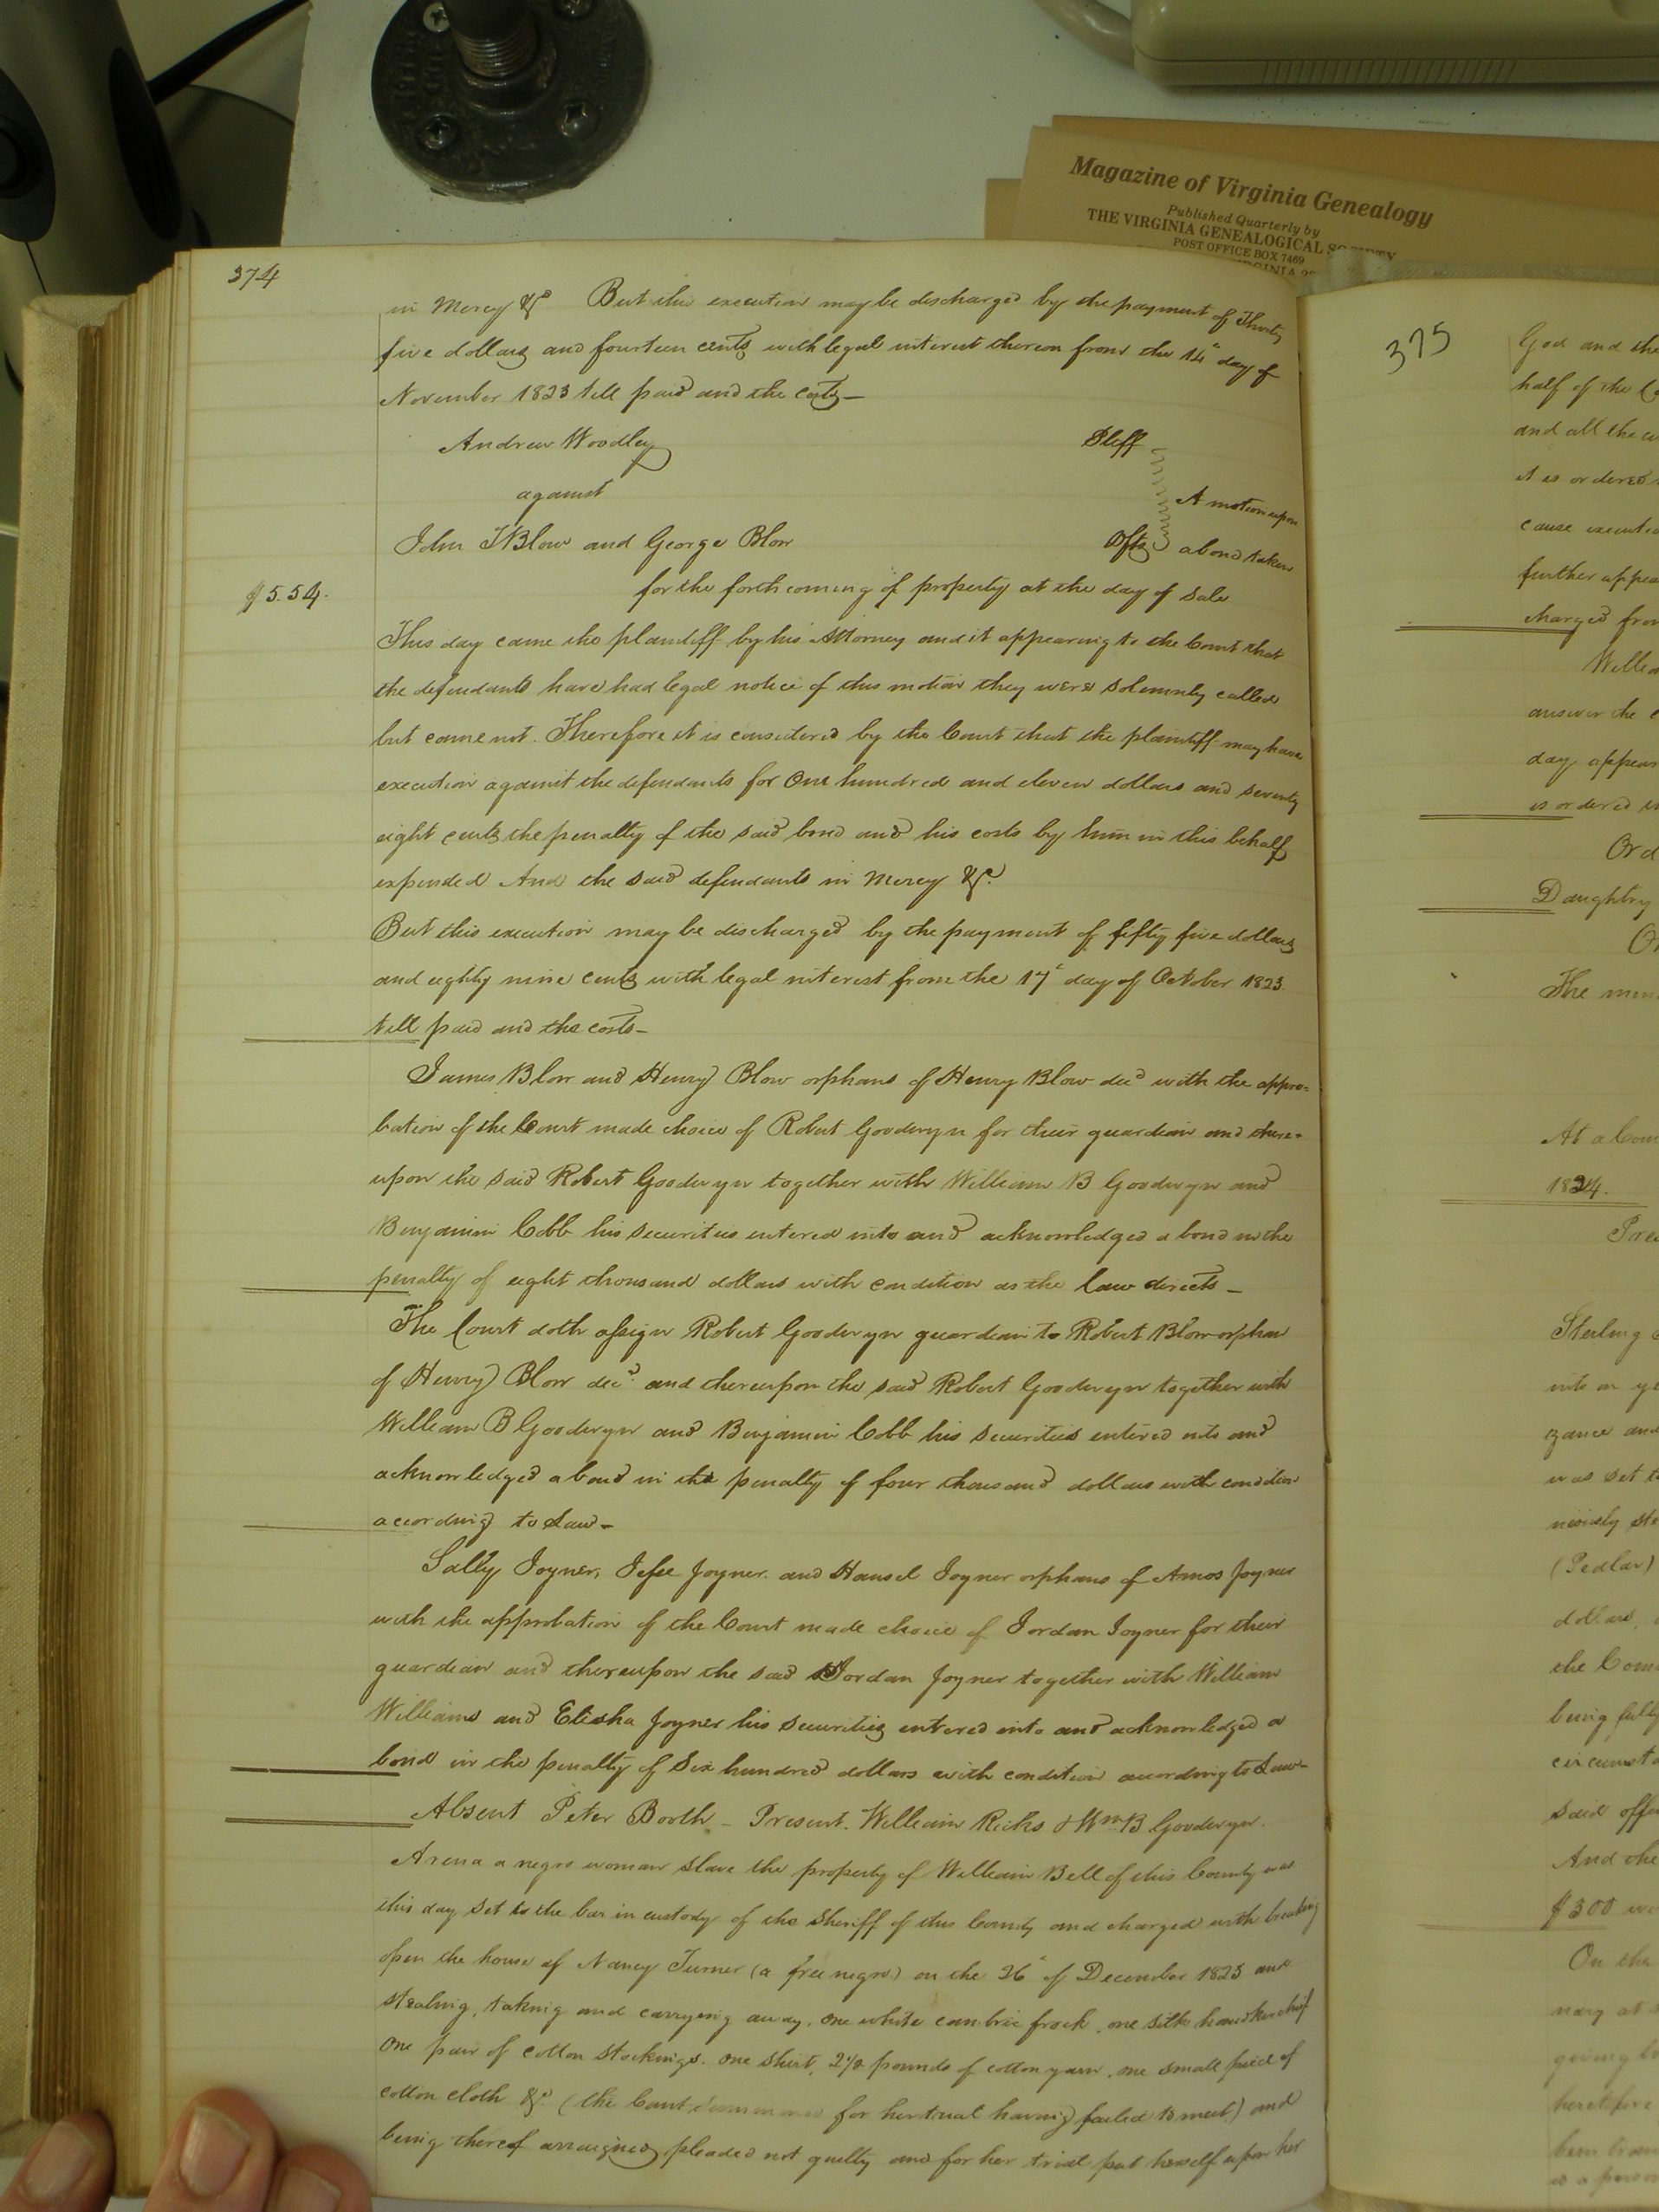 Magazine of Virginia Genealogy
Published Quarterly by
THE VIRGINIA GENEALOGICAL SOCIETY
POST OFFICE BOX 7469
374
in Mercy &c. But this execution may be discharged by the payment of Thirty
five dollars and fourteen cents with legal interest thereon from the 14th day of
November 1823 till paid and the costs—
Andrew Woodley Pltff
against A motion upon
John T Blow and George Blow Dfts a bond taken
$5.54. for the forthcoming of property at the day of sale
This day came the plaintiff by his Attorney and it appearing to the Court that
the defendants have had legal notice of this motion they were solemnly called
but came not. Therefore it is considered by the Court that the plaintiff may have
execution against the defendants for One hundred and eleven dollars and seventy
eight cents the penalty of the said bond and his costs by him in this behalf
expended And the said defendants in Mercy &c.
But this execution may be discharged by the payment of fifty five dollars
and eighty nine cents with legal interest from the 17th day of October 1823.
till paid and the costs—
James Blow and Henry Blow orphans of Henry Blow decd with the appro=
bation of the Court made choice of Robert Goodwyn for their guardian and there=
upon the said Robert Goodwyn together with William B Goodwyn and
Benjamin Cobb his securities entered into and acknowledged a bond in the
penalty of eight thousand dollars with condition as the law directs—
The Court doth assign Robert Goodwyn guardian to Robert Blow orphan
of Henry Blow decd. and thereupon the said Robert Goodwyn together with
William B Goodwyn and Benjamin Cobb his securities entered into and
acknowledged a bond in the penalty of four thousand dollars with condition
according to Law—
Sally Joyner, Jesse Joyner. and Hansel Joyner orphans of Amos Joyner
with the approbation of the Court made choice of Jordan Joyner for their
guardian and thereupon the said Jordan Joyner together with William
Williams and Elisha Joyner his securities entered into and acknowledged a
bond in the penalty of Six hundred dollars with condition according to Law—
Absent Peter Booth — Present. William Ricks & Wm B Goodwyn.
Arena a negro woman slave the property of William Bell of this County was
this day set to the bar in custody of the Sheriff of this County and charged with breaking
open the house of Nancy Turner (a free negro) on the 26th of December 1823 and
stealing, taking and carrying away, one white cambric frock, one silk handkerchief
One pair of cotton stockings. one shirt, 2 1/2 pounds of cotton yarn, one small piece of
cotton cloth &c. (the Court for her trial having failed to meet) and
being thereof arraigned pleaded not guilty and for her trial put herself upon her
375
God and the
half of the
and all the
it is ordered
cause
further
charged from
answer the
day
is ordered
Daughtry
The
At a
1824.
Sterling
into
zance and
was set
(Pedlar)
dollars
the
being
said
And the
$300
On the